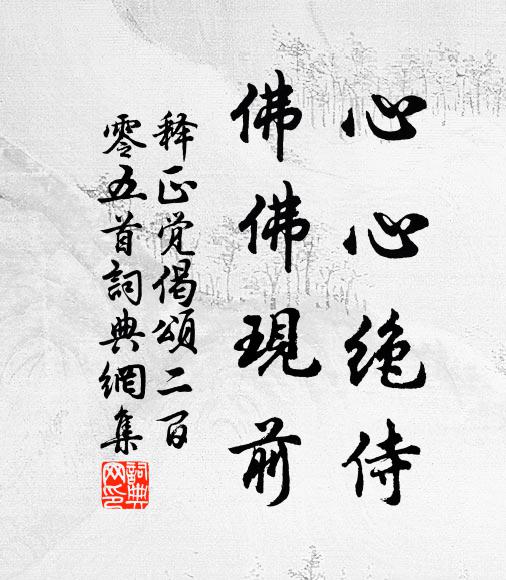 心心绝侍
佛佛現前
释正觉偈頌二百
零五首詞典網集
詞典网印